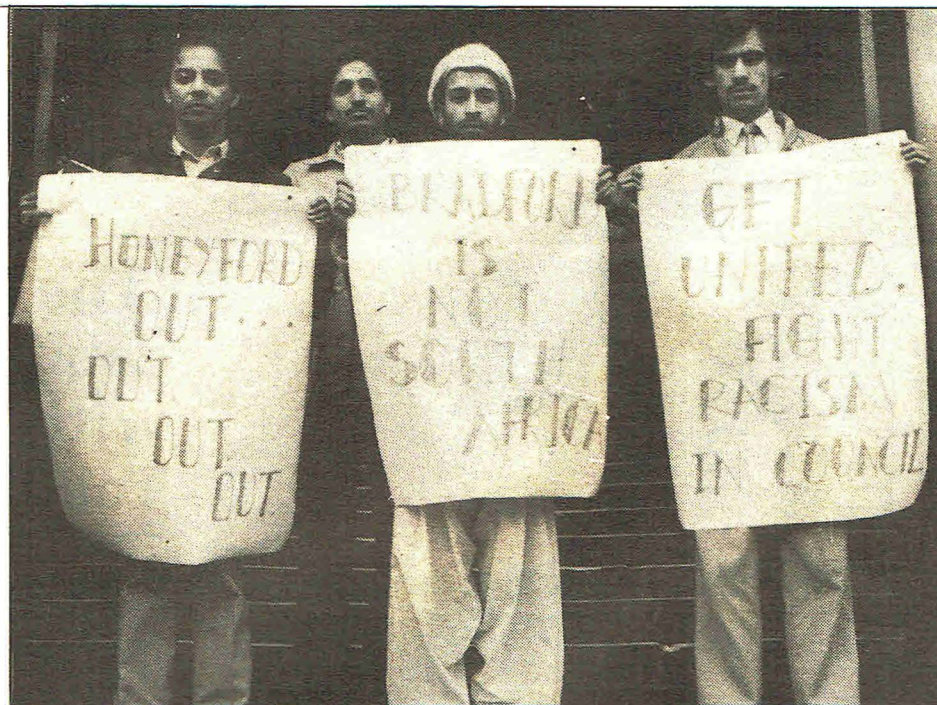 HONEYFORD
OUT...
OUT
OUT
OUT
BRADFORD
IS
NOT
SOUTH
AFRICA
GET
UNITED.
FIGHT
RACISM
IN COUNCIL